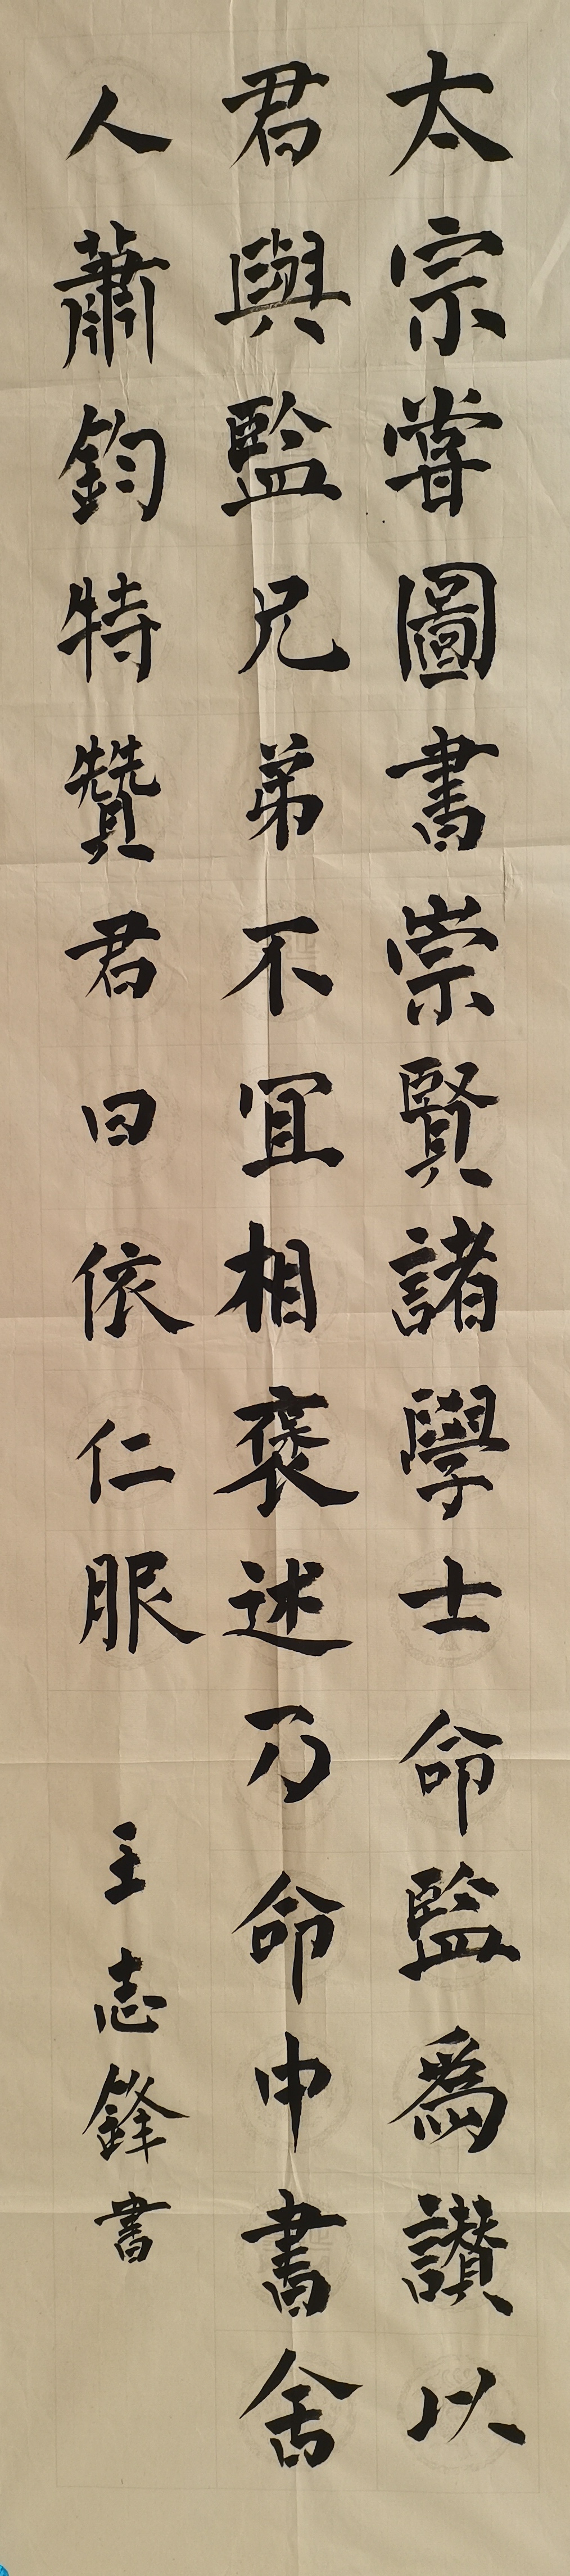 太宗嘗圖書崇賢諸學士命監為讃以
君與監兄弟不宜相褒述乃命中書舍
人蕭鈞特贊君曰依仁服
王志鋒書